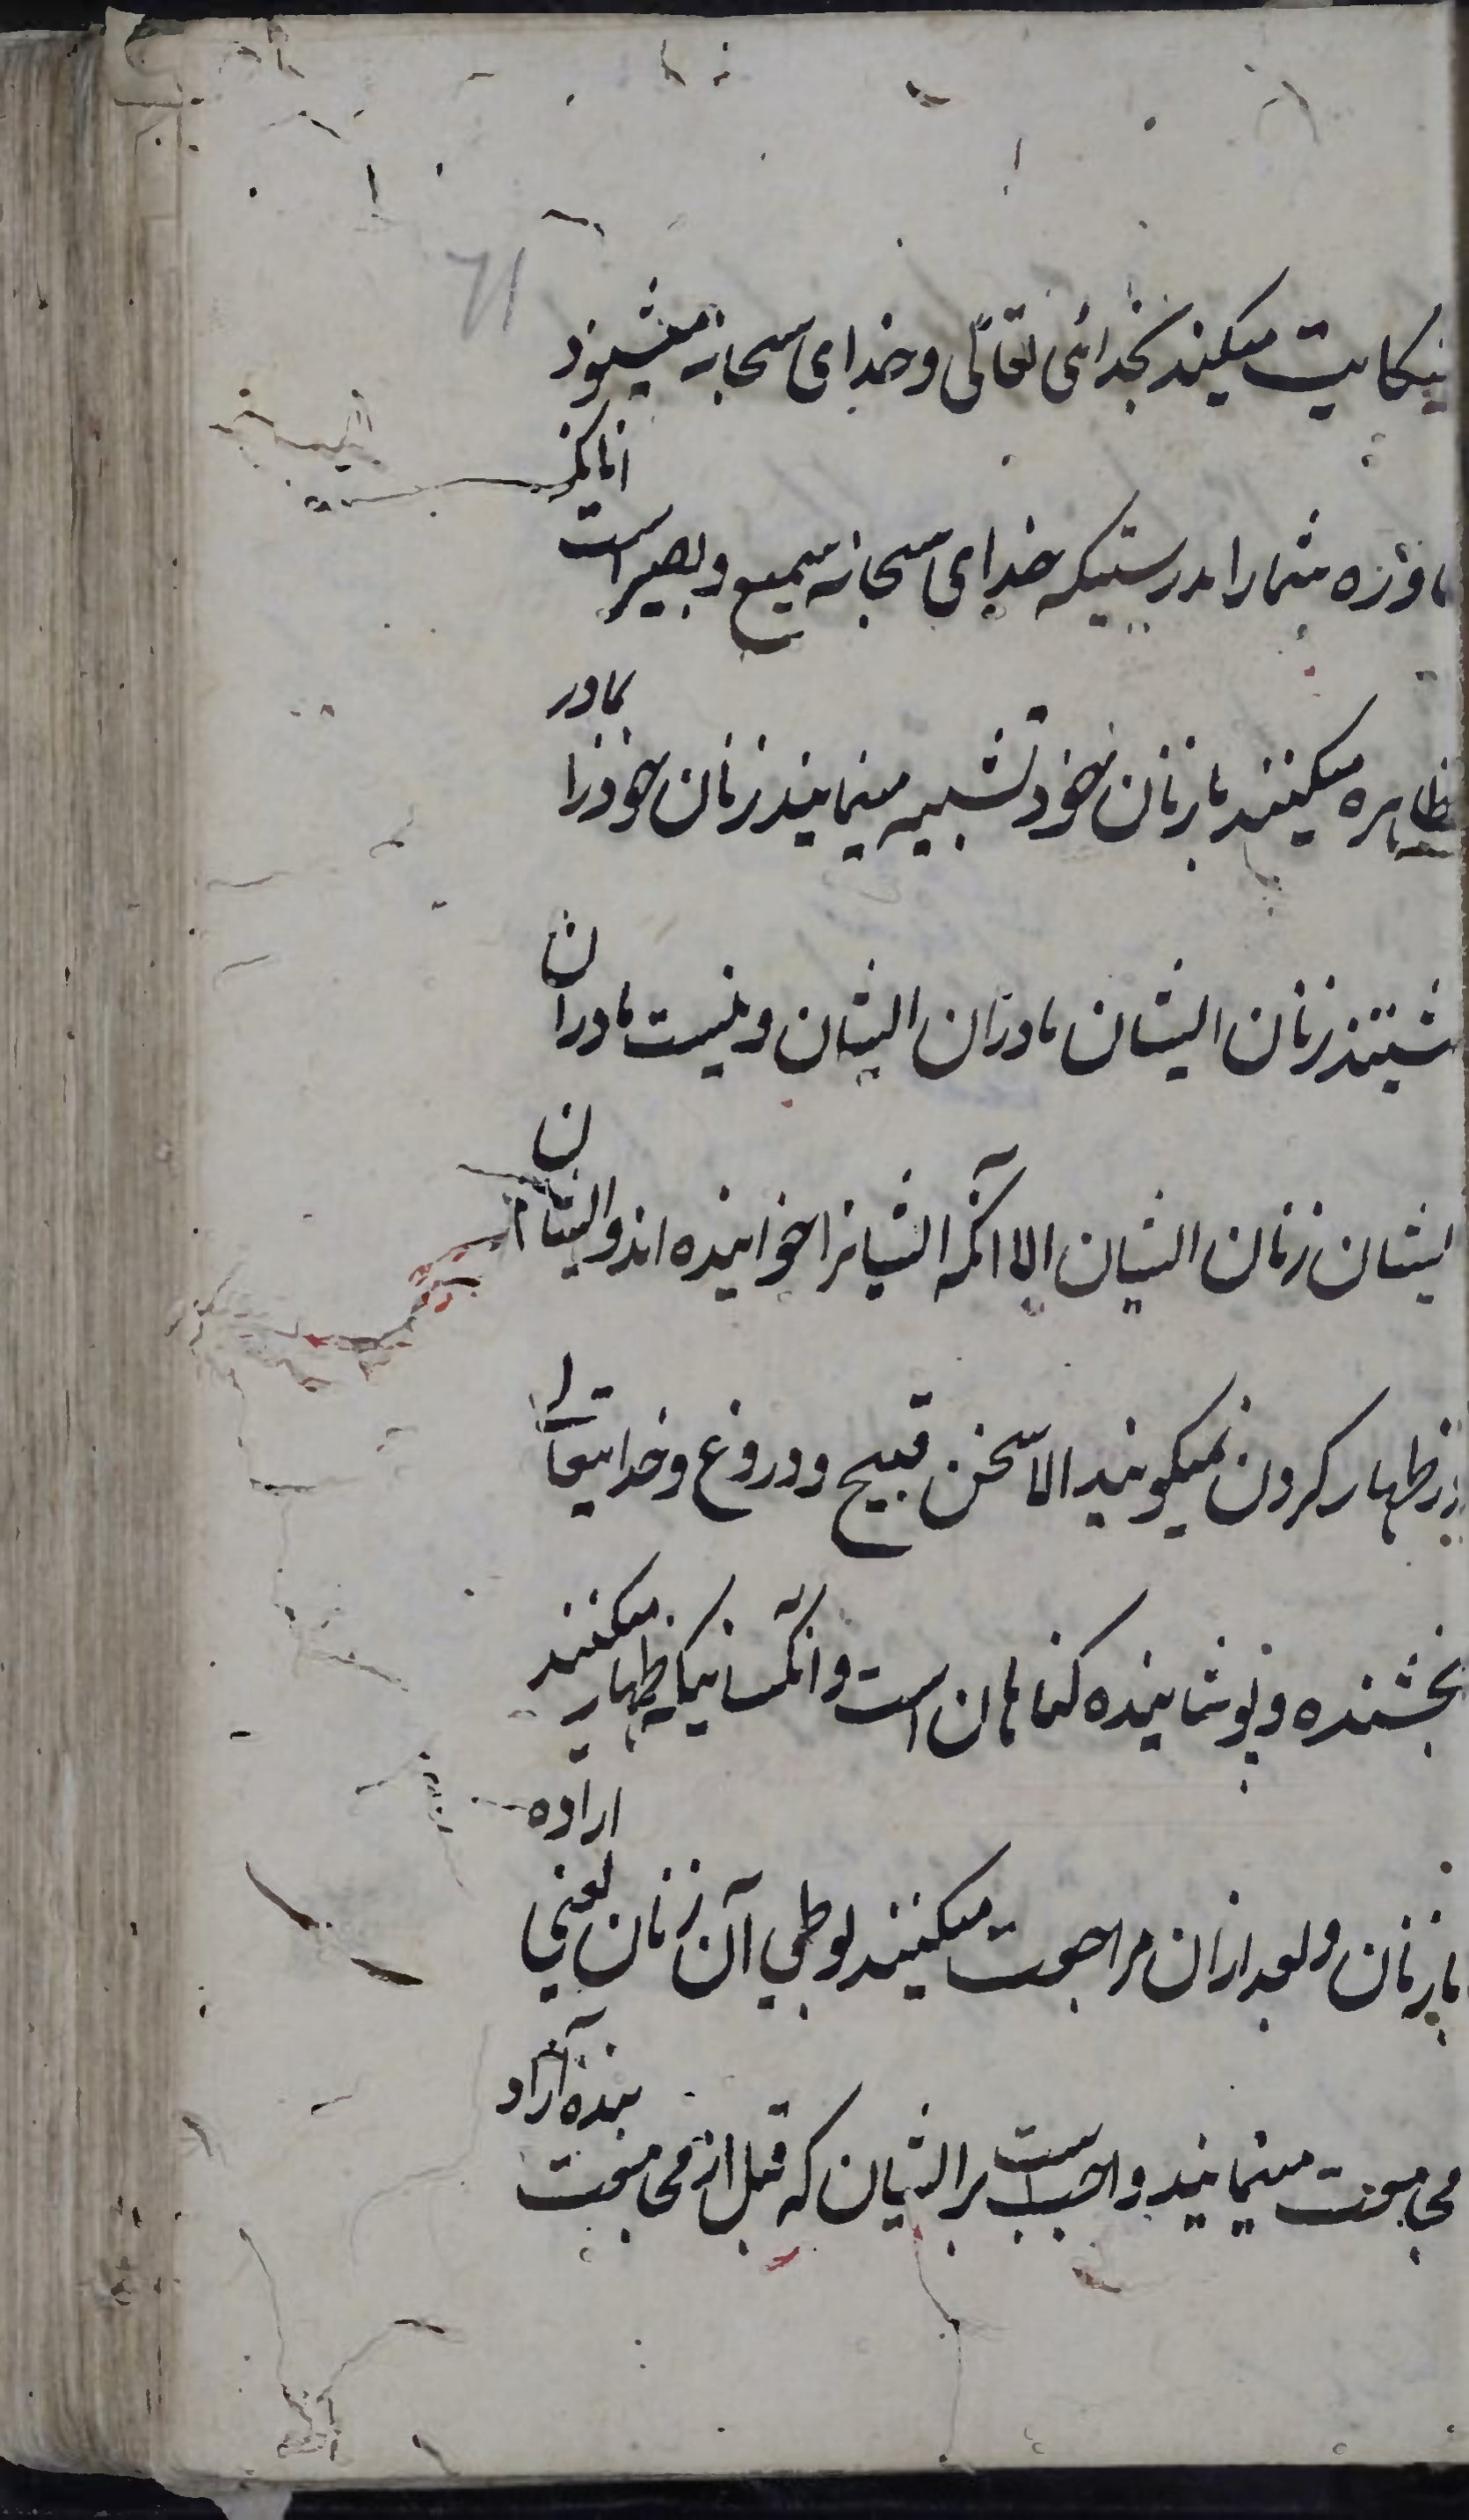 71
شکایت میکند بخدائی تعالی و خدای سبحانه میشنود
محاوره شما را بدرستیکه خدای سبحانه سمیع و بصیر است آنانکه
مظاهره میکنند با زنان خود تشبیه مینمایند زنان خود را بمادر
نیستند زنان ایشان مادران ایشان و نیست مادران
ایشان زنان ایشان الا آنکه ایشانرا خوانیده اند و ایشان
در ظهار کردن نمیکویند الا سخن قبیح و دروغ و خدایتعالی
بخشنده و پوشاینده کناهان است و آنکسانیکه ظهار میکنند
با زنان و بعد ازان مراجعت میکنند بوطی آن زنان یعنی اراده
مجامعت مینمایند واجب است بر ایشان که قبل از مجامعت بنده آزاد